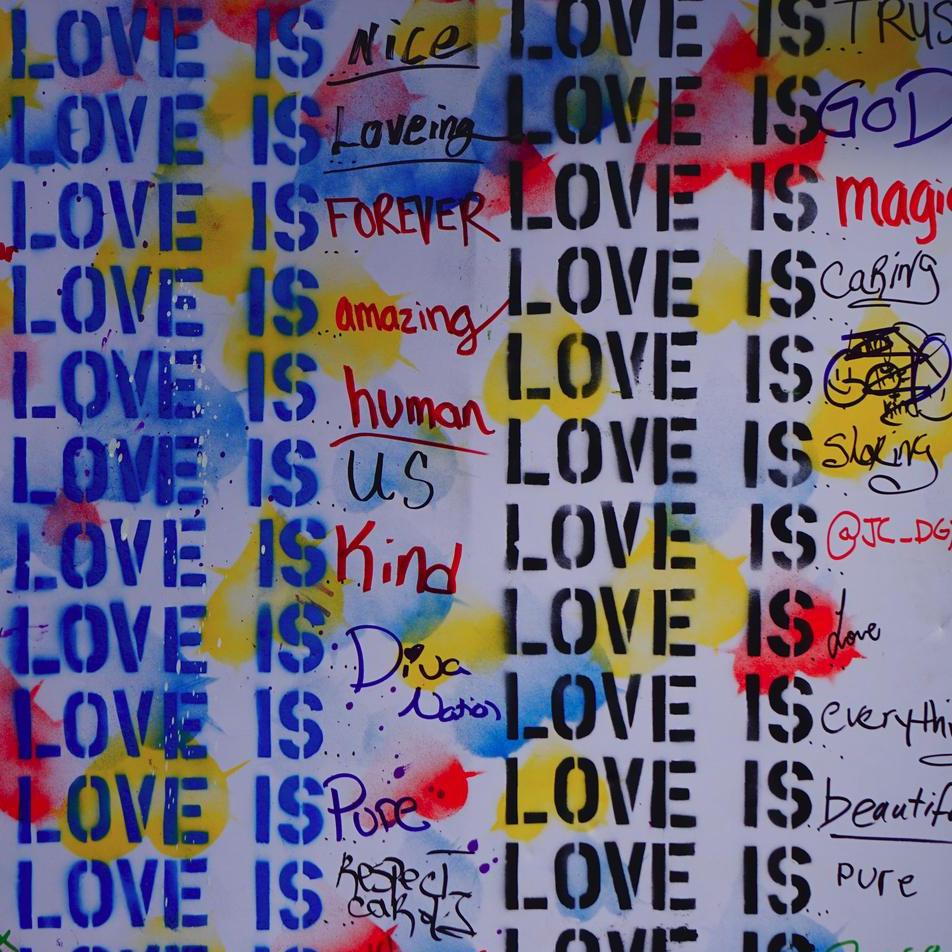 LOVE IS Nice
LOVE IS Loveing
LOVE IS FOREVER
LOVE IS amazing
LOVE IS human
LOVE IS US
LOVE IS Kind
LOVE IS Diva
Nation
LOVE IS
LOVE IS Pure
LOVE IS Respect
LOVE IS
LOVE IS TRUS
LOVE IS GOD
LOVE IS magic
LOVE IS CARING
LOVE IS
kind
LOVE IS ShaRing
LOVE IS @JC_DG
LOVE IS Love
LOVE IS everythi
LOVE IS beautif
LOVE IS pure
LOVE IS